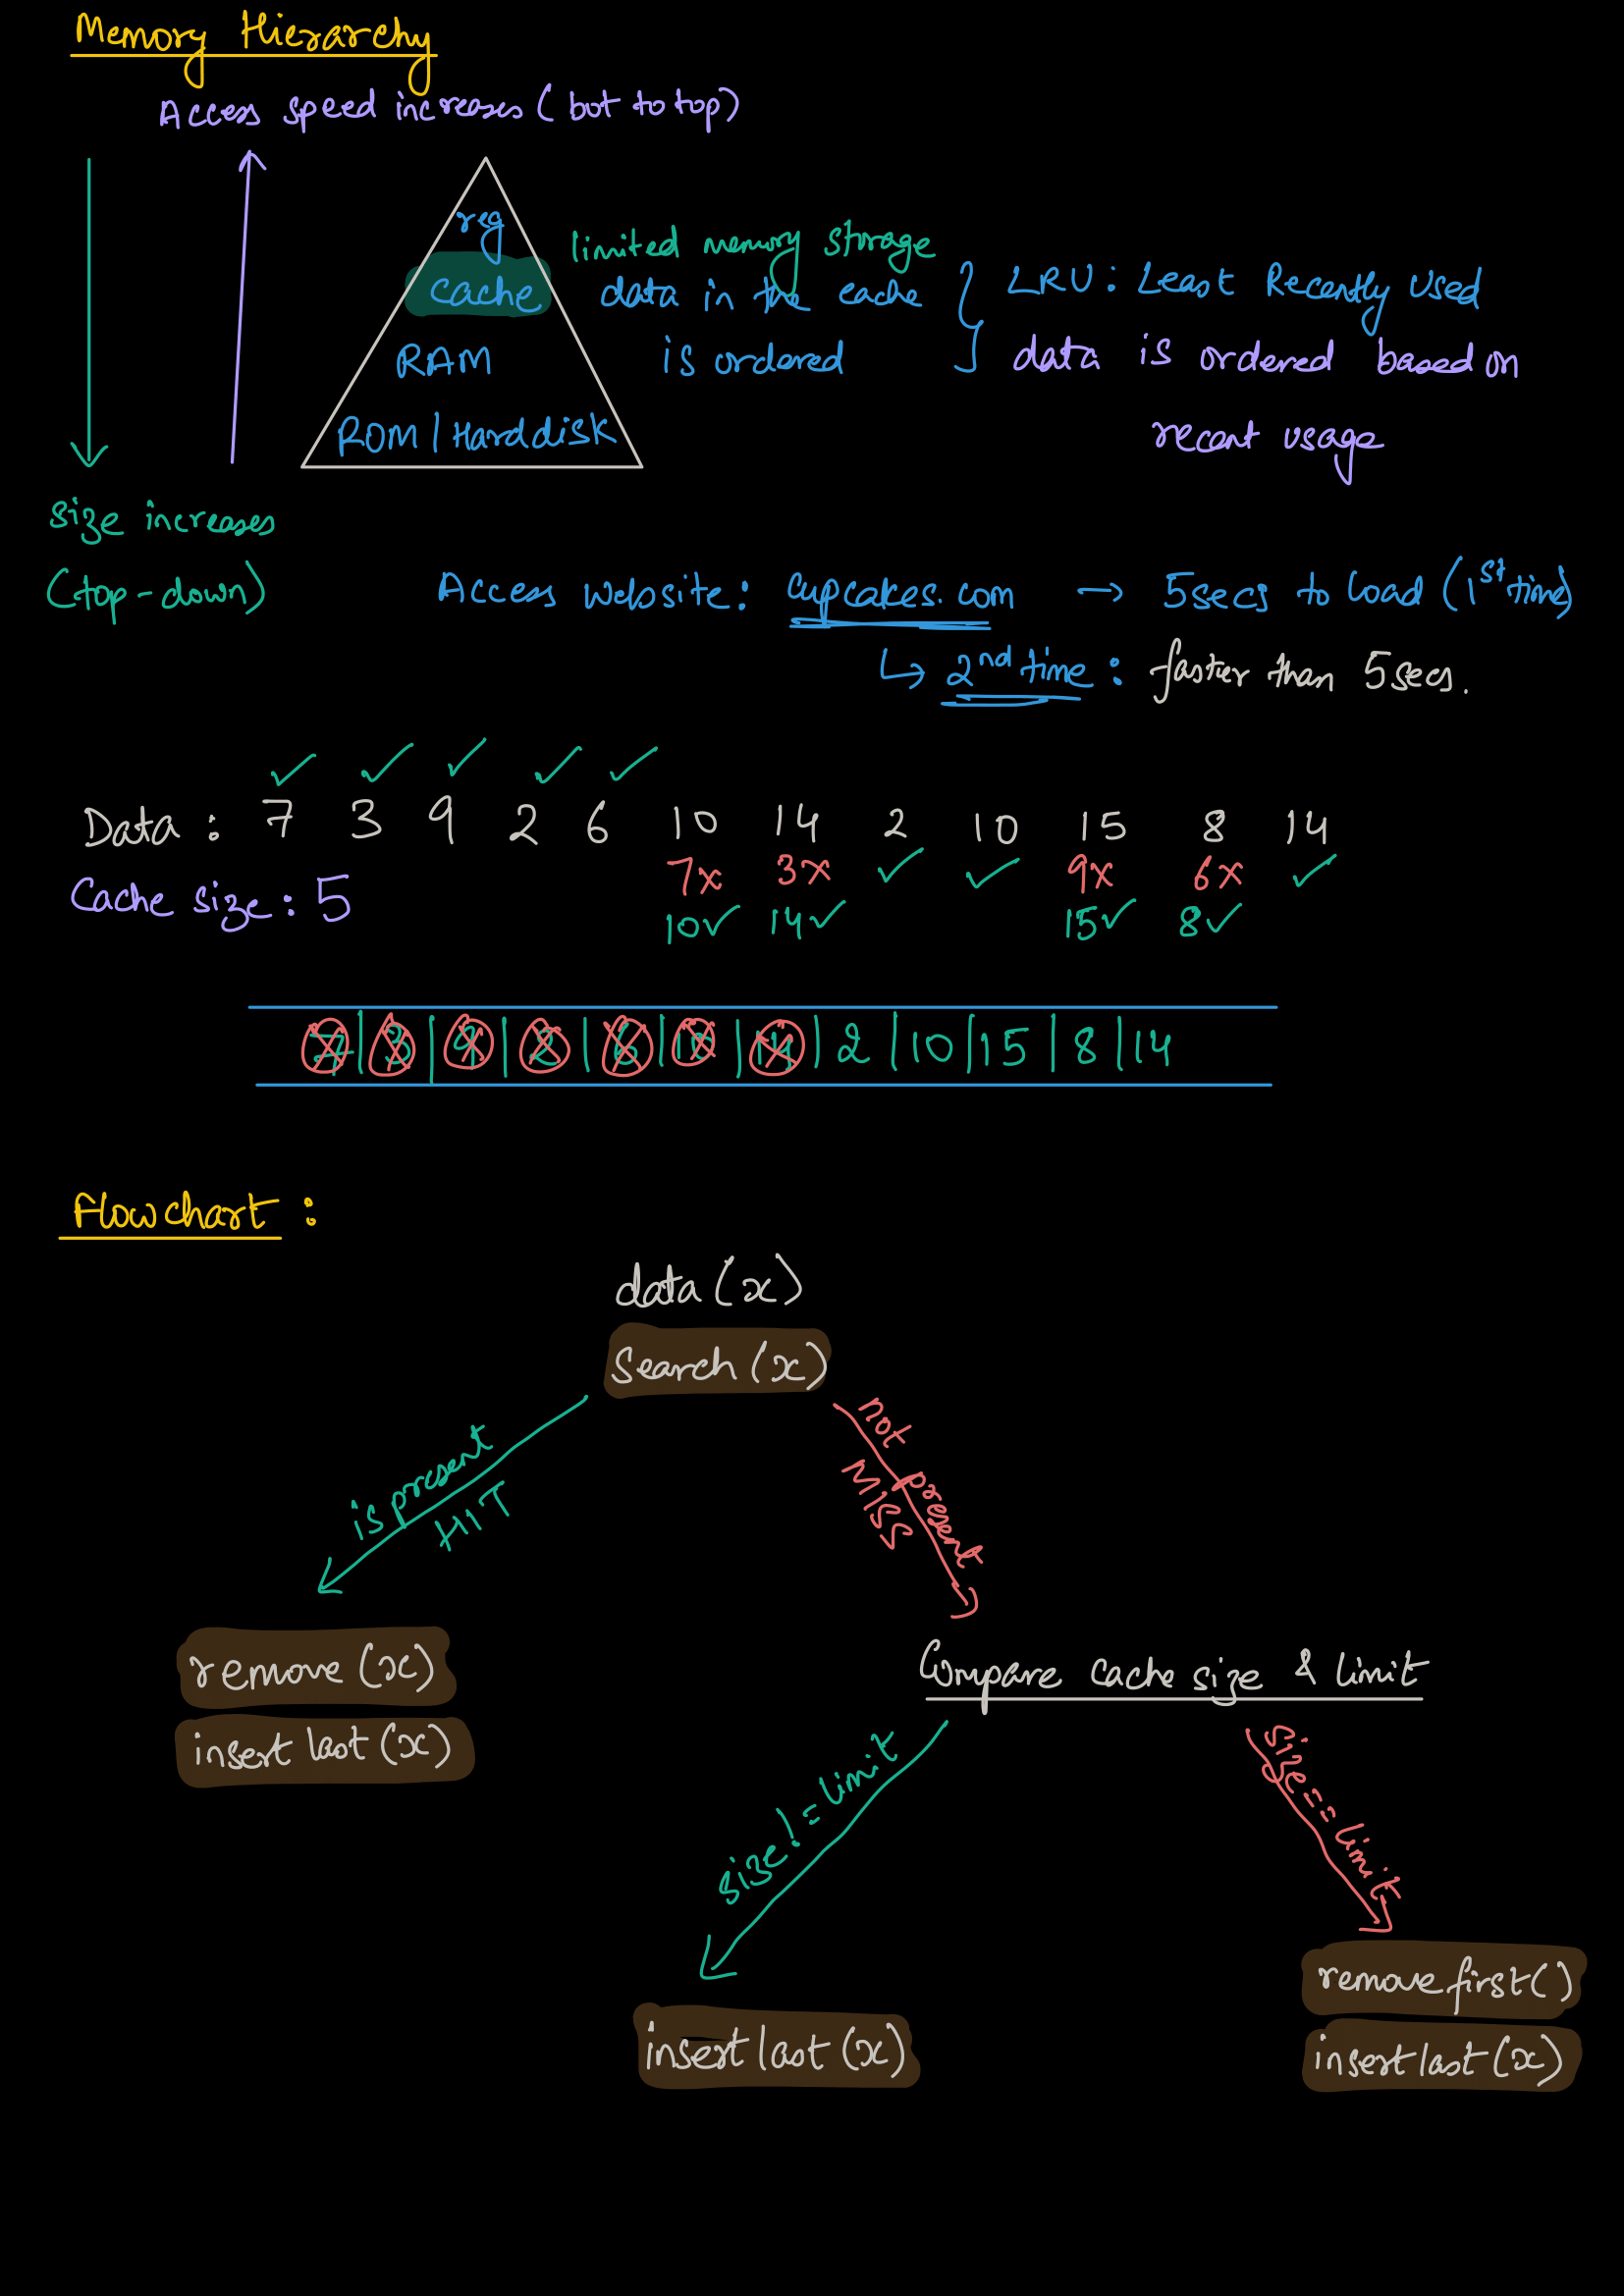 Memory Hierarchy
Access speed increases (bot to top)
reg
cache
RAM
ROM | Hard disk
limited memory storage
data in the cache
is ordered
LRU : Least Recently Used
data is ordered based on
recent usage
size increases
(top-down)
Access website: cupcakes.com → 5secs to load (1st time)
↳ 2nd time : faster than 5secs.
✓ ✓ ✓ ✓ ✓
Data : 7 3 9 2 6 10 14 2 10 15 8 14
7x 3x ✓ ✓ 9x 6x ✓
Cache size : 5
10✓ 14✓ 15✓ 8✓
7 | 3 | 9 | 2 | 6 | 10 | 14 | 2 | 10 | 15 | 8 | 14
Flowchart :
data (x)
Search (x)
is present
HIT
not present
MISS
remove (x)
insert last (x)
Compare cache size & limit
size != limit
size == limit
insert last (x)
remove first ()
insert last (x)